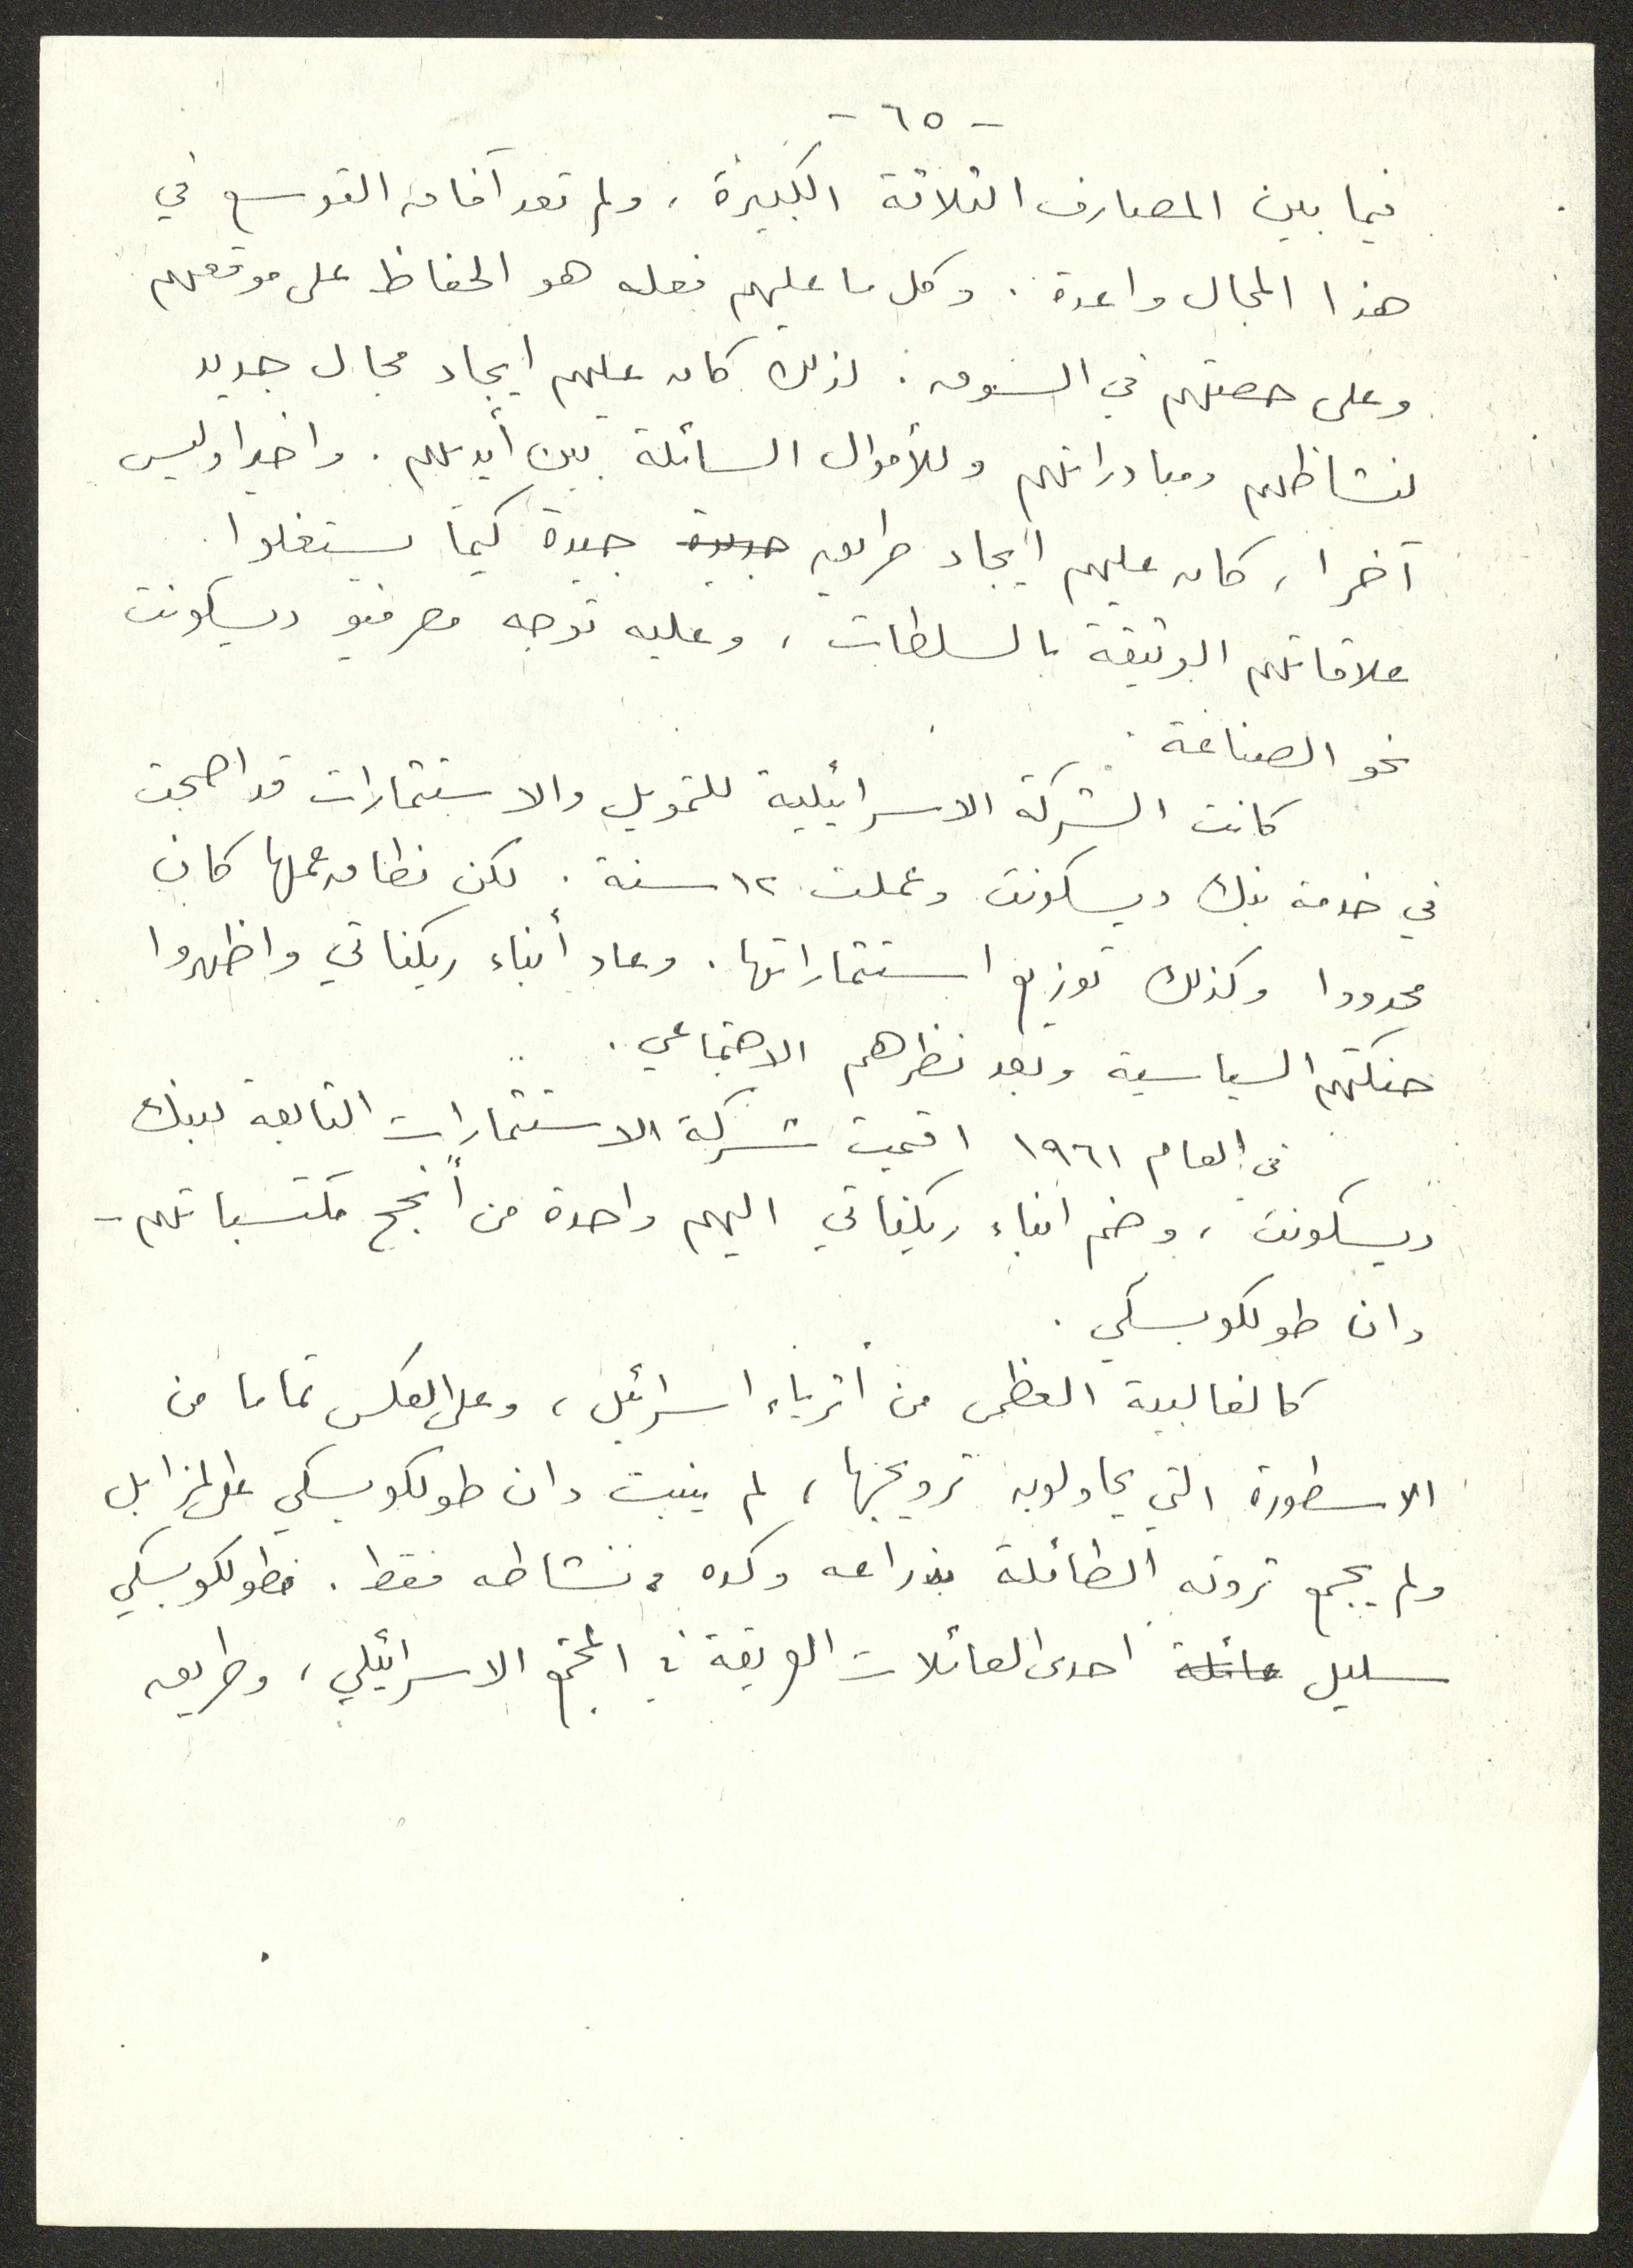 - ٦٥ -
فيما بين المصارف الثلاثة الكبيرة، ولم تعد آفاق التوسع في
هذا المجال واعدة. وكل ما عليهم فعله هو الحفاظ على موقعهم
وعلى حصتهم في السوق. لذلك كان عليهم ايجاد مجال جديد
لنشاطهم ومبادراتهم وللأموال السائلة بين أيديهم. واخيرا وليس
آخرا، كان عليهم ايجاد طريق جديدة جيدة كيما يستغلوا
علاقاتهم الوثيقة بالسلطات، وعليه توجه مصرفيو ديسكونت
نحو الصناعة.
كانت الشركة الاسرائيلية للتمويل والاستثمارات قد اصبحت
في خدمة بنك ديسكونت وعملت ١٢ سنة. لكن نطاق عملها كان
محدودا وكذلك توزيع استثماراتها. وعاد أبناء ريكناتي واظهروا
حنكتهم السياسية وبعد نظرهم الاجتماعي.
في العام ١٩٦١ اقيمت شركة الاستثمارات التابعة لبنك
ديسكونت، وضم ابناء ريكناتي اليهم واحدة من أنجح مكتسباتهم -
دان طولكوبسكي.
كالغالبية العظمى من أثرياء اسرائيل، وعلى العكس تماما من
الاسطورة التي يحاولون ترويجها، لم ينبت دان طولكوبسكي على المزابل
ولم يجمع ثروته الطائلة بذراعه وكده ونشاطه فقط. فطولكوبسكي
سليل عائلة احدى العائلات العريقة في المجتمع الاسرائيلي، وطريق